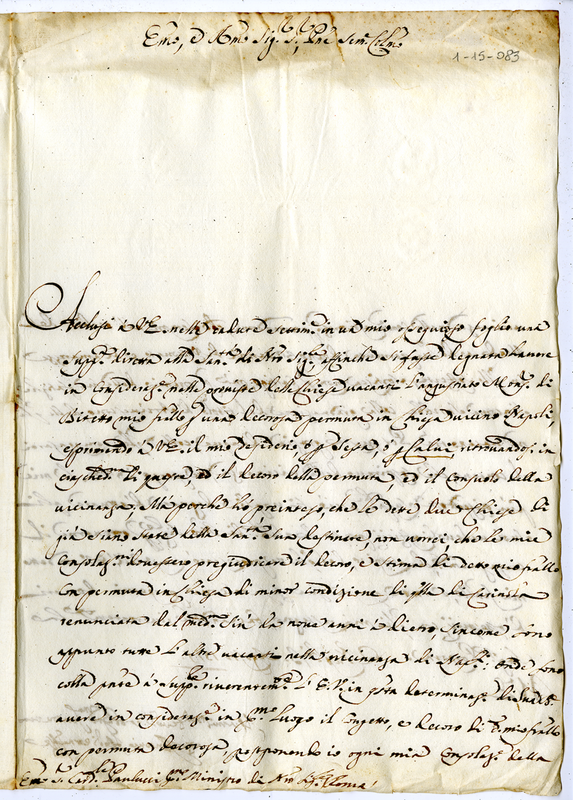 Emo, e Rmo Sig.r S.r, Pne Sem.e Colmo
1-15-083
Acclusi à V.E. nella caduta Settim.a in un mio ossequioso foglio una
Supp.ca diretta alla San.tà di Nro Sig.re, affinche si fusse degnata havere
in Consideraz.e nelle provviste delle Chiese vacanti l'angustiato Mons. di
Bitetto mio fratello per una decorosa permuta in Chiesa vicino Napoli,
esprimendo à V.E. il mio desiderio ò per Sessa, ò per Calvi, ritrovandosi in
ciascheduna di queste, ed il decoro della permuta, ed il Consuolo della
vicinanza. Mà perche hò preinteso, che le dette due Chiese di
già siano state dalla San.tà Sua destinate, non vorrei che le mie
Consolaz.ni dovessero pregiudicare il decoro, e stima di detto mio frallo
con permuta in Chiesa di minor condizione di q.lla di
renunciata dal med.mo sin da nove anni à dietro, sincome sono
appunto tutte l'altre vacanti nella vicinanza di Nap.li. Onde sono
colla p.nte à supp.re riverentem.te l'E.V. in q.sta determinaz.e di
avere in consideraz.e in p.mo luogo il Concetto, e decoro di d.o mio frallo
con permuta decorosa, postponendo io ogni mia Consolaz.e della
Emo S.r Card.le Paulucci p.mo Ministro di Nro Sig.re Roma